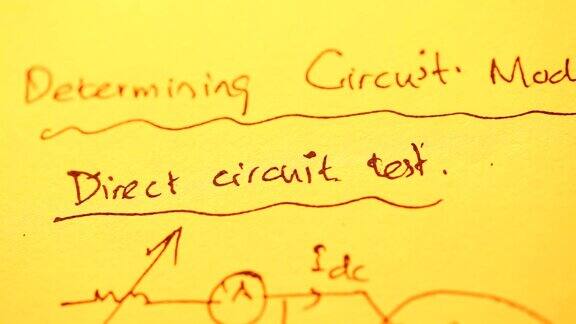 Determining Circuit. Mod
Direct circuit test.
Idc
A